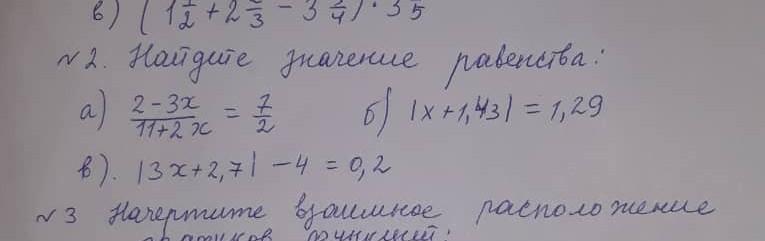 в) (1 1/2 + 2 2/3 - 3 3/4) · 3 1/5
№2. Найдите значение равенства:
а) (2-3x)/(11+2x) = 7/2 б) |x+1,43| = 1,29
в). |3x+2,7| - 4 = 0,2
№3 Начертите взаимное расположение
графиков функций: